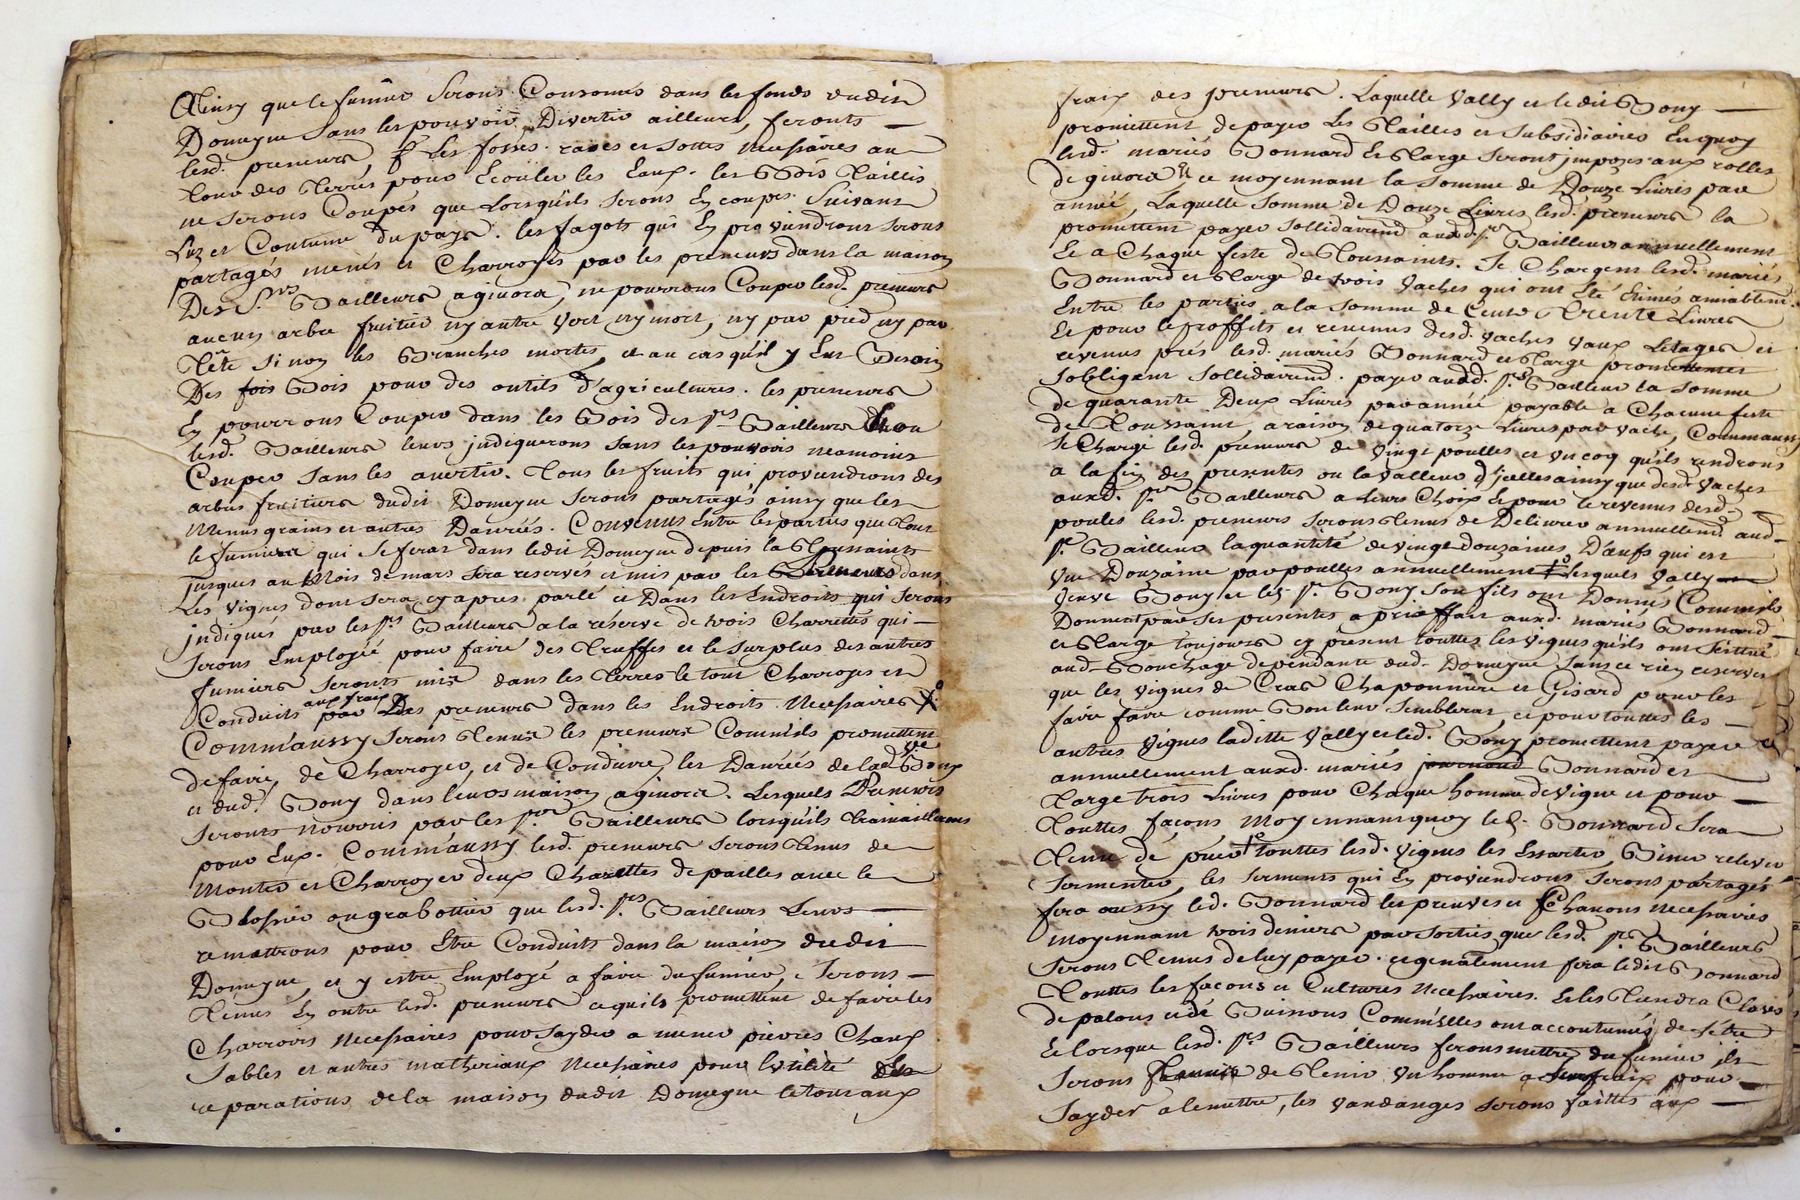 Ainsy que le fumier Serons Consomés dans les fonds dudit
Domeyne Sans les pouvoir Divertir ailleurs, ferons
lesd. preneurs, les fossés rases et sottes necessaires au
tour des Terres pour Ecouler les Eaux. les Bois Tailles
ne Serons Coupés que Lorsqu'ils Serons En coupes Suivant
Luz et Coutume du pays. les fagots qui En proviendrons Serons
partagés menés et Charroyés par les preneurs dans la maison
Des Srs Bailleurs a givors, ne pourrons Couper lesd. preneurs
aucun arbre fruitier ny autre Vert ny mort, ny par pied ny par
Tête Si non les Branches mortes, et au cas qu'il y Eut Besoin
Des fois Bois pour des outils d'agricultures. les preneurs
En pourrons Couper dans les Bois des Srs Bailleurs
lesd. Bailleurs leurs jndiquerons Sans les pouvoir neamoins
Couper Sans les avertir. Tous les fruits qui proviendrons des
arbres fruitiers dudit Domeyne Serons partagés ainsy que les
Menus grains et autres Danrées. Convenus Entre les parties que Tout
le fumier qui Se ferat dans ledit Domeyne depuis la Toussaints
jusques au Mois de mars Sera reservés et mis par les Preneurs dans
Les Vignes dont Sera cy apres parlé et Dans les Endroits qui Serons
jndiqués par les Srs Bailleurs a la reserve de trois Charrettés qui
Serons Employée pour faire des Truffes et le Surplus des autres
fumiers Seronts mis dans les Terres le tout Charroyes et
Conduits par aux fraix Des preneurs dans les Endroits Necessaires
Comm'aussy Serons Tenus les preneurs Comm'ils promettent
de faire, de Charroyer, et de Conduire, les Danrées de lad. Ve Bony
et dud. Bony dans leurs maison a givors. Lesquels Preneurs
Seronts nourris par les Srs Bailleurs lorsqu'ils Travaillerons
pour Eux. Comm'aussy lesd. preneurs Serons Tenus de
Monter et Charroyer deux Charettes de pailles avec le
Blossier ou grabottier que lesd. Srs Bailleurs Leurs
remettrons pour Etre Conduits dans la maison dudit
Domeyne, et y estre Employé a faire du fumier, Serons
Tenus En outre lesd. preneurs ce quils promettent de faire les
Charrois Necessaires pour Sayder a mener pierres Chaux
Sables et autres matheriaux Necessaires pour lutilité des
reparations de la maison dudit Domeyne le tout aux
fraix des preneurs. Laquelle Vally et ledit Bony
promettent de payer Les Tailles et Subsidiaires En quoy
lesd. mariés Bonnard Et Targe Seront jmposes aux rolles
de givors Et ce moyennant la Somme de Douze Livres par
année, Laquelle Somme de Douze Livres lesd. preneurs la
promettent payer Sollidairemt auxd. Srs Bailleurs annuellement
Et a Chaque feste de Toussaints. Se Chargent lesd. mariés
Bonnard et Targe de trois Vaches qui ont Eté Etimés amiablemt
Entre les parties a la Somme de Cents Trente Livres
Et pour le proffits et revenus desd. Vaches Vaux Letages et
revenus prés lesd. mariés Bonnard et Targe promettent
Sobligent Sollidairemt. payer auxd. Srs Bailleur la Somme
de quarante Deux Livres par année payable a Chacune feste
de Toussaint, a raison de quatorze Livres par Vache, Comm'aussy
Se Charge lesd. preneurs de Vingt poulles et Un coq quils rendrons
a la fin des presentes ou la Valleur d'jcelles ainsy que desd. Vaches
auxd. Srs Bailleurs a Leurs Choix Et pour le revenus desd.
poules lesd. preneurs Serons Tenus de Delivrer annuellemt auxd.
Sr Bailleur la quantité de Vingt douzaines D'œufs qui est
Une Douzaine par poulles annuellement lesquels Vally
Veuve Bony et le Sr Bony Son fils ont Donnés Comm'ils
Donnent par Ses presentes a prix fait auxd. mariés Bonnard
et Targe toujours cy present touttes les Vignes qu'ils ont
aud. Bouchage dependante dud. Domeyne Sans ce rien reserver
que les Vignes de Cras Chaponnière et Gisard pour les
faire faire comme Bon leur Semblerat, et pour touttes les
autres Vignes laditte Vally et led. Bony promettent payer
annuellement auxd. mariés Bonnard et
Targe trois Livres pour Chaque homme de Vigne et pour
Touttes façons Moyennant quoy le S. Bonnard Sera
Tenu de touttes lesd. Vignes les Essarter, Biner relever
Sermenter, les Serments qui En proviendrons Serons partagés
fera aussy led. Bonnard les preuves et Chanons necessaires
moyennant trois deniers par Sorties que lesd. Srs Bailleurs
Serons Tenus de luy payer. egenalement fera ledit Bonnard
Touttes les façons et Cultures necessaires. Et les Tiendra Closes
de palons et de Buissons Comm'elles ont accoutumés de l'étre
Et lorsque lesd. Srs Bailleurs ferons mettre du fumier ils
Serons de Tenir Un homme a fraix pour
Sayder a le mettre, les Vandanges Serons faittes aux